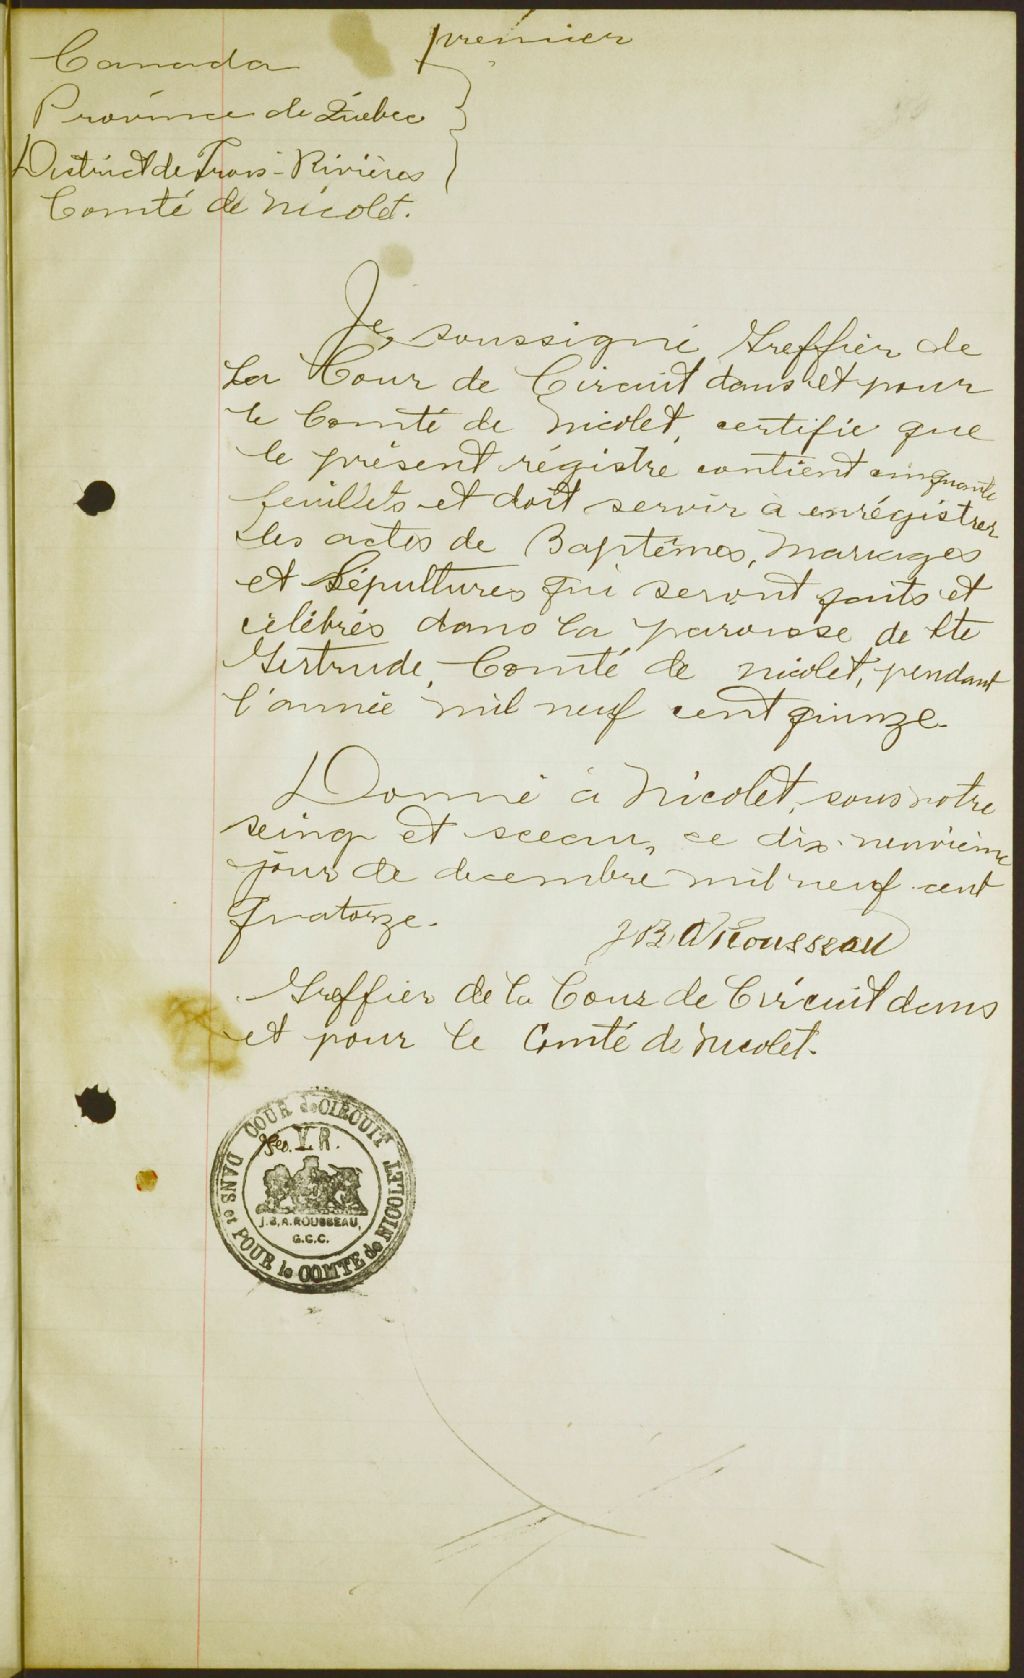 premier
Canada
Province de Québec
District de Trois-Rivières
Comté de Nicolet.
Je, soussigné, Greffier de
la Cour de Circuit dans et pour
le Comté de Nicolet, certifie que
le présent régistre contient cinquante
feuillets et doit servir à enrégistrer
les actes de Baptêmes, Mariages
et Sépultures qui seront faits et
célébrés dans la paroisse de Ste
Gertrude, Comté de Nicolet, pendant
l'année mil neuf cent quinze.
Donné à Nicolet, sous notre
seing et sceau, ce dix-neuvième
jour de decembre mil neuf cent
quatorze.
J B A Rousseau
Greffier de la Cour de Circuit dans
et pour le Comté de Nicolet.
COUR de CIRCUIT
DANS et POUR le COMTE de NICOLET
Geo. V. R.
J.B.A. ROUSSEAU,
G.C.C.